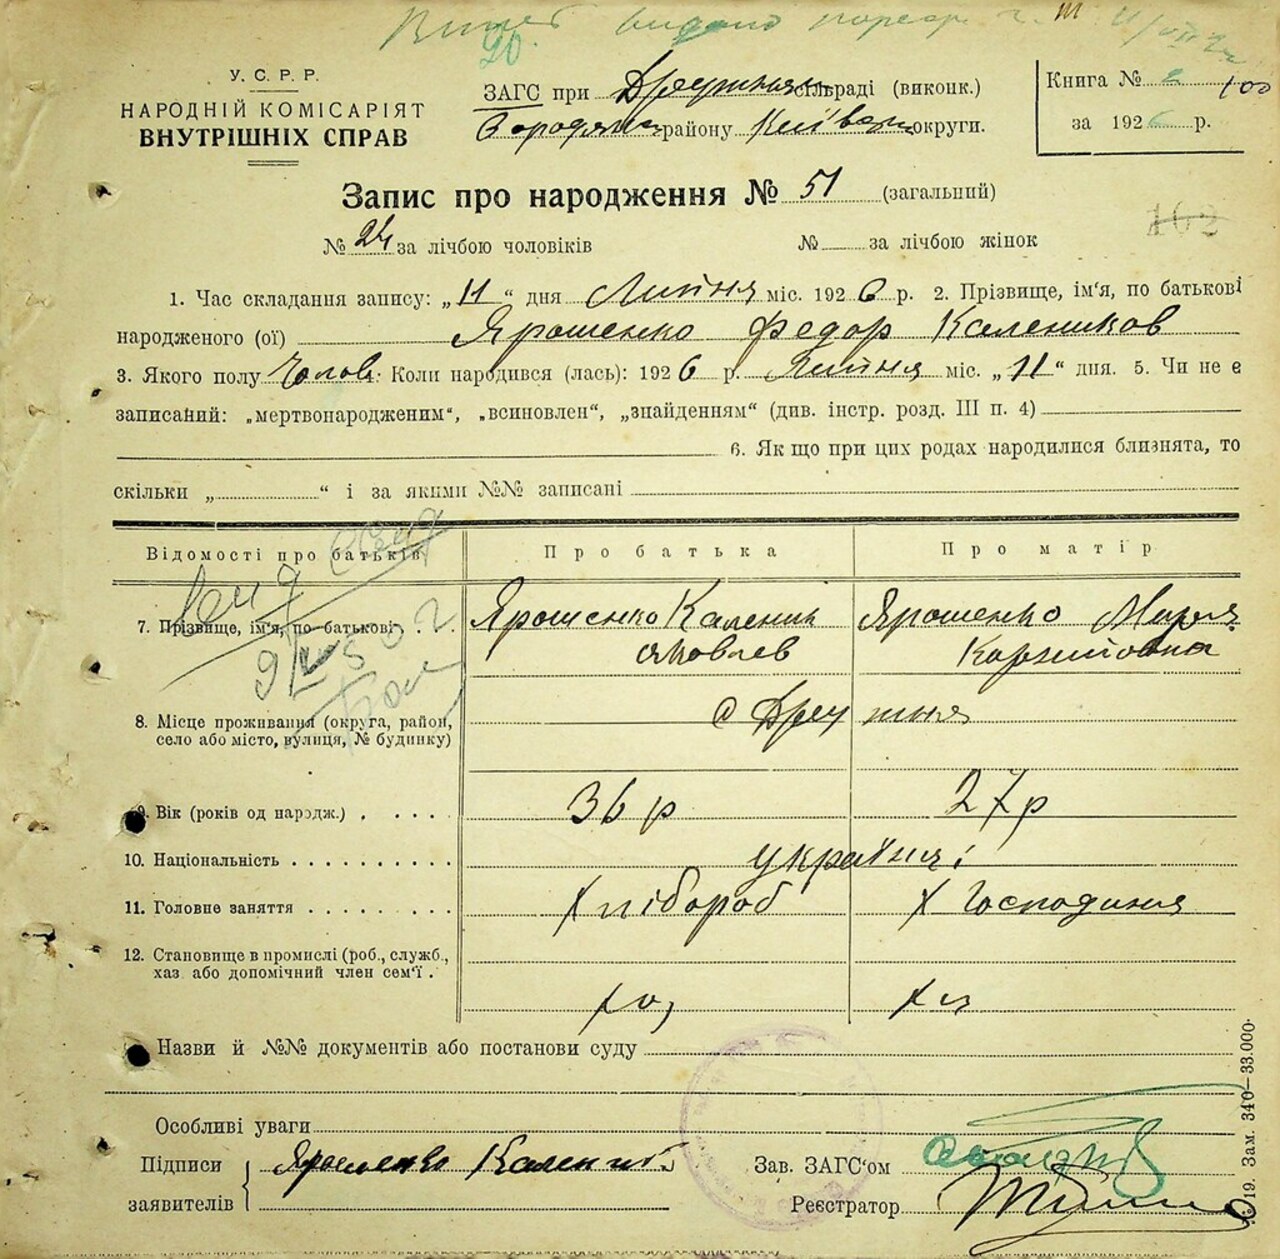 У. С. Р. Р.
НАРОДНІЙ КОМІСАРІЯТ
ВНУТРІШНІХ СПРАВ
ЗАГС при Дружнянсільраді (виконк.)
Бородянрайону Київськ округи.
Книга № 2 100
за 1926 р.
Запис про народження № 51 (загальний)
102
№ 24 за лічбою чоловіків № за лічбою жінок
1. Час складання запису: „11“ дня Липня міс. 1926 р. 2. Прізвище, ім'я, по батькові
народженого (ої) Ярошенко Федор Калеников
3. Якого полу Чолов 4. Коли народився (лась): 1926 р. Липня міс. „11“ дня. 5. Чи не є
записаний: „мертвонародженим“, „всиновлен“, „знайденням“ (див. інстр. розд. III п. 4)
6. Як що при цих родах народилися близнята, то
скільки „ “ і за якими №№ записані
Відомості про батьків Про батька Про матір
7. Прізвище, ім'я, по батькові Ярошенко Каленик Ярошенко Марія
Яковлев
8. Місце проживання (округа, район, с Дружня
село або місто, вулиця, № будинку)
9. Вік (років од народж.) 36 р 27 р
10. Національність українці
11. Головне заняття Хлібороб Х Господиня
12. Становище в промислі (роб., служб.,
хаз. або допомічний член сем'ї
Назви й №№ документів або постанови суду
Особливі уваги
Підписи Ярошенко Каленик Зав. ЗАГС'ом
заявителів Реєстратор
№ 19. Зам. 340—33.000.